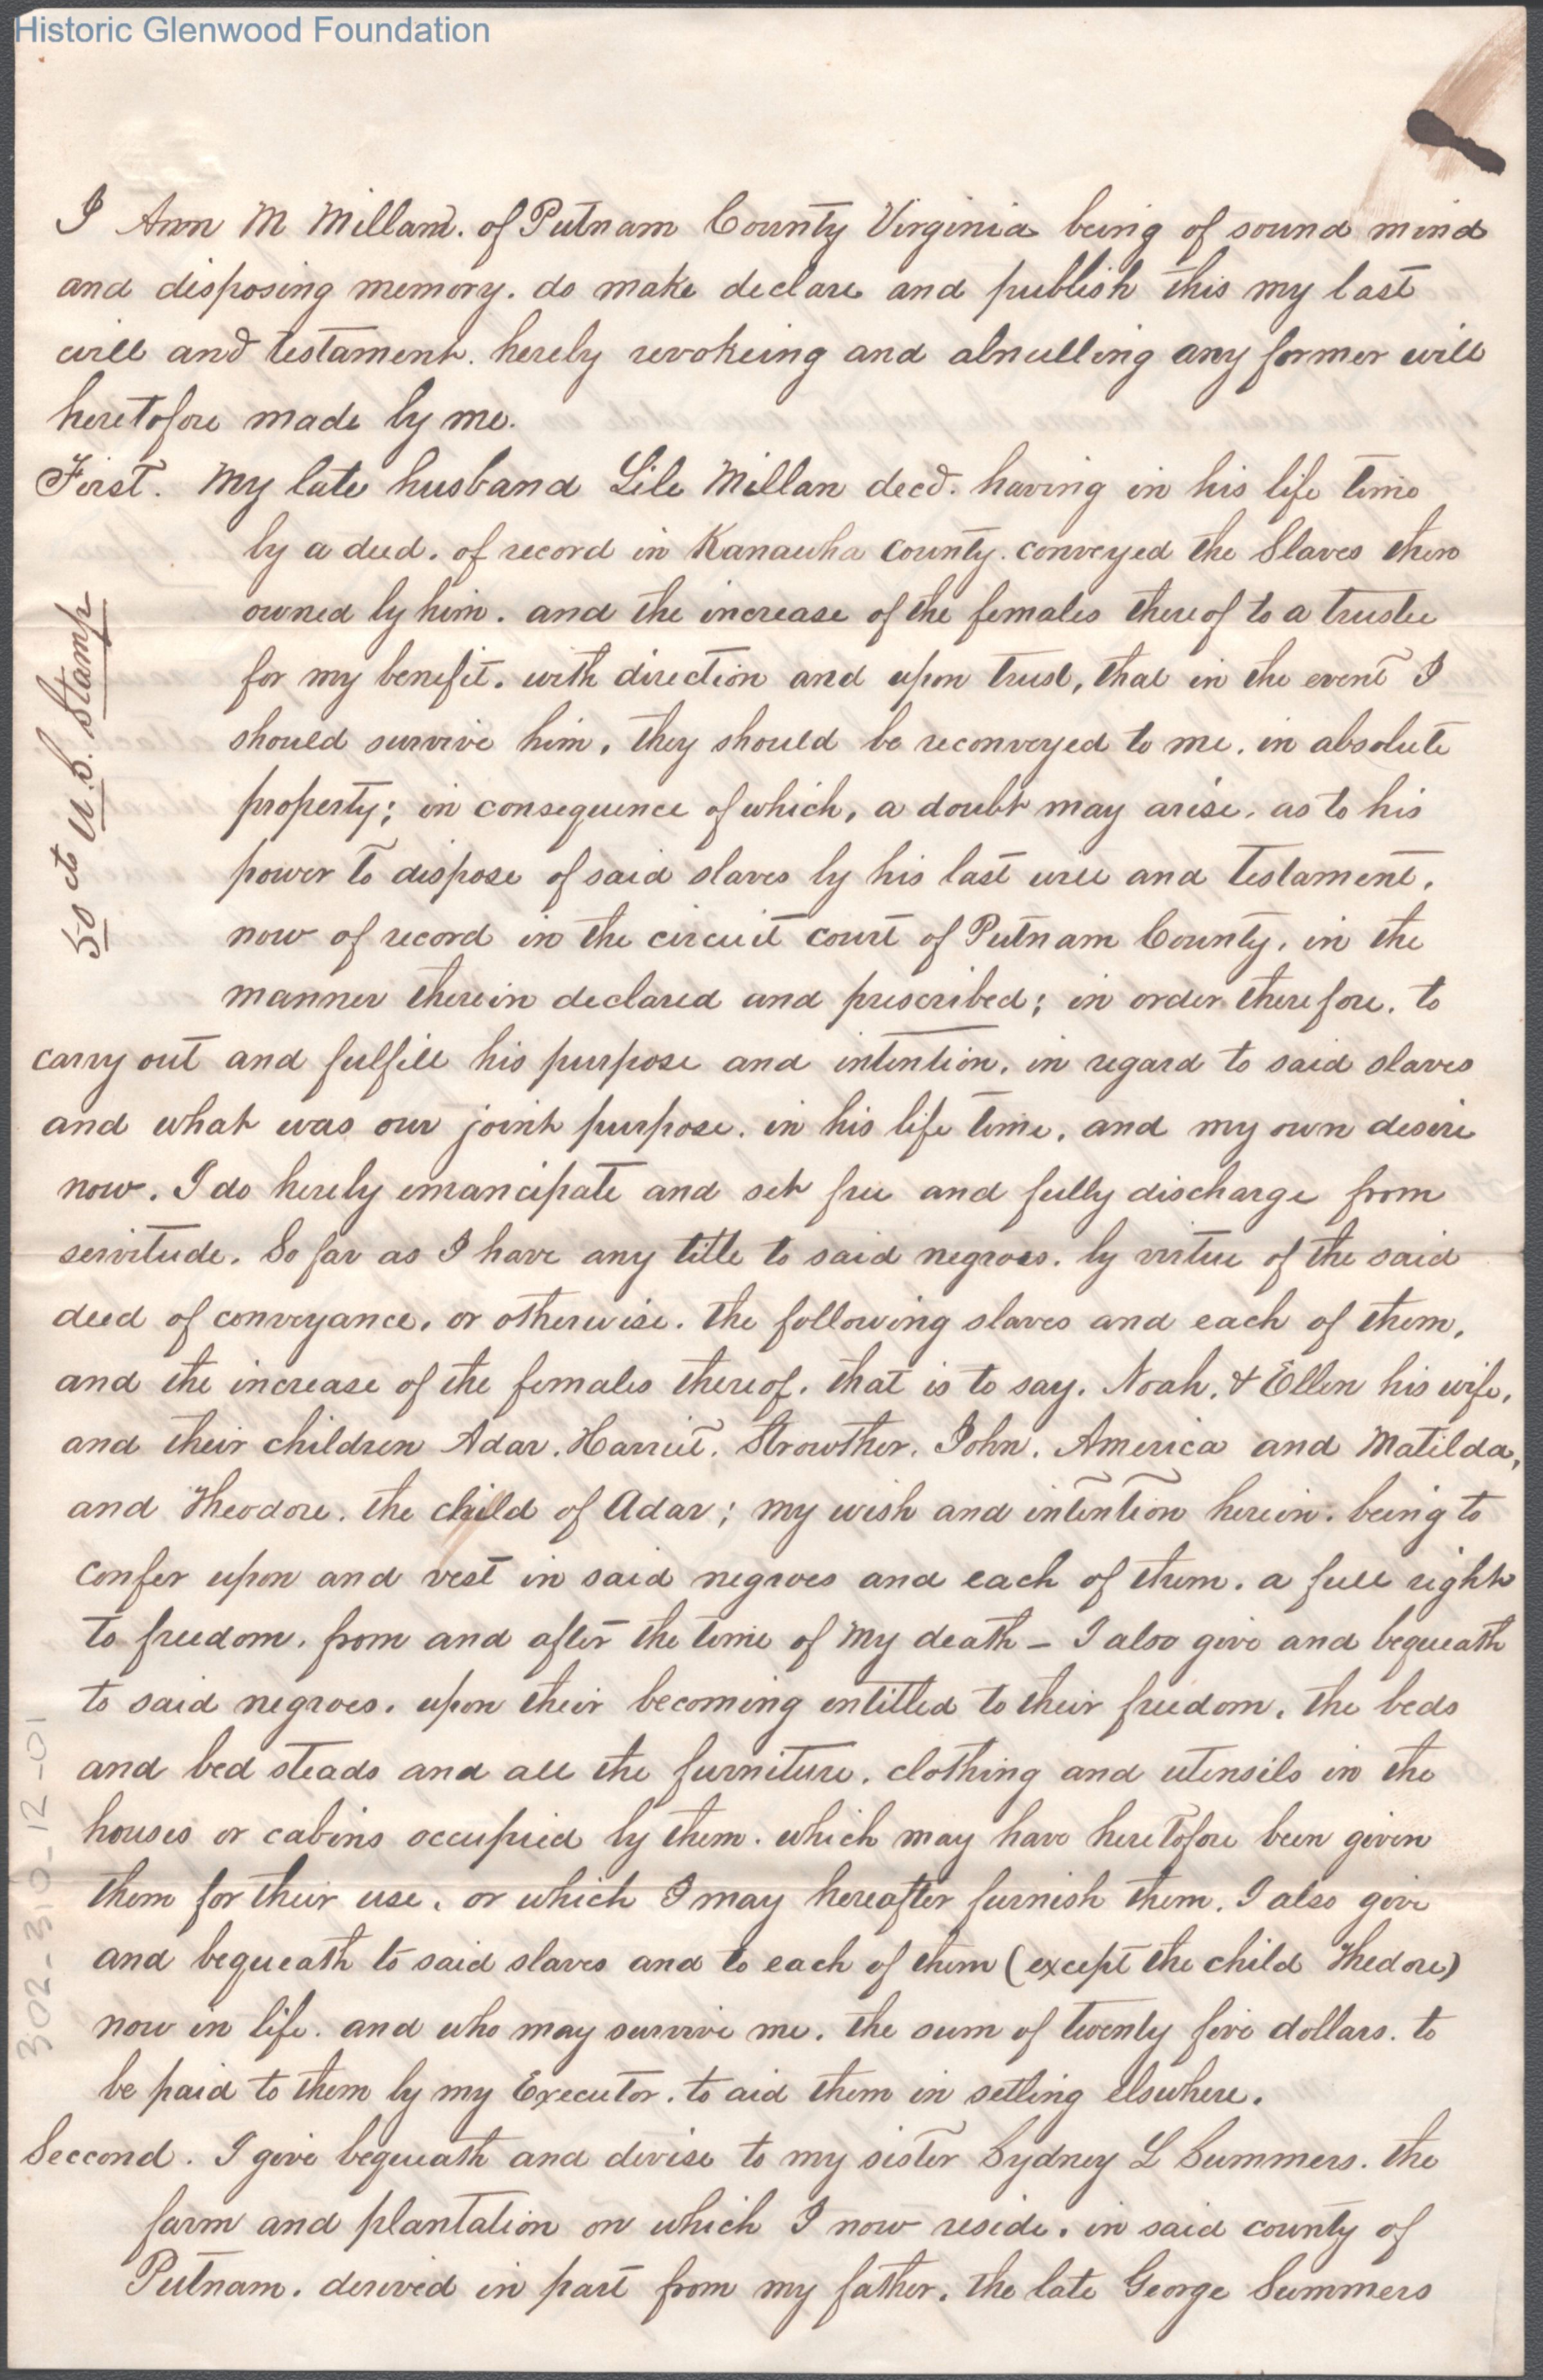 Historic Glenwood Foundation
I Ann M Milland. of Putnam County Virginia being of sound mind
and disposing memory. do make declare and publish this my last
will and testament. hereby revokeing and abnulling any former will
heretofore made by me.
First. My late husband Lile Millan decd. having in his life time
by a deed. of record in Kanawha County. conveyed the Slaves then
owned by him. and the increase of the females thereof to a trustee
for my benefit. with direction and upon trust, that in the event I
should survive him, they should be reconveyed to me. in absolute
property; in consequence of which, a doubt may arise. as to his
power to dispose of said slaves by his last will and testament.
now of record in the circuit court of Putnam County. in the
manner therein declared and prescribed; in order therefore. to
carry out and fulfill his purpose and intention. in regard to said slaves
and what was our joint purpose. in his life time. and my own desire
now. I do hereby emancipate and set free and fully discharge from
servitude. So far as I have any title to said negroes. by virtue of the said
deed of conveyance. or otherwise. the following slaves and each of them.
and the increase of the females thereof. that is to say. Noah. & Ellen his wife.
and their children Adar. Harriet. Strowther. John. America and Matilda,
and Theodore. the child of Adar; my wish and intention herein. being to
confer upon and vest in said negroes and each of them. a full right
to freedom. from and after the time of my death – I also give and bequeath
to said negroes. upon their becoming entitled to their freedom. the beds
and bed steads and all the furniture. clothing and utensils in the
houses or cabins occupied by them. which may have heretofore been given
them for their use. or which I may hereafter furnish them. I also give
and bequeath to said slaves and to each of them (except the child Thedore)
now in life. and who may survive me. the sum of twenty five dollars. to
be paid to them by my Executor. to aid them in setling elswhere.
Seccond. I give bequeath and devise to my sister Sydney L Summers. the
farm and plantation on which I now reside. in said county of
Putnam. derived in part from my father. the late George Summers
50 ct U.S. Stamp
302-310-12-01